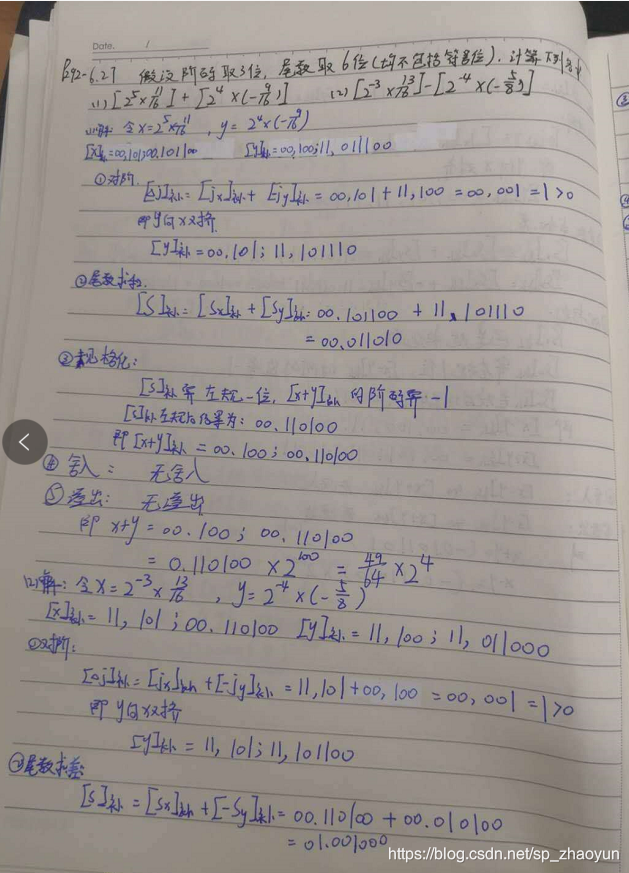 Date. /
P292-6.27 假设阶码取3位，尾数取6位(均不包括符号位)，计算下列各
(1) [2^5×11/16] + [2^4×(-9/16)] (2) [2^-3×13/16]-[2^-4×(-5/8)]
(1)解: 令x=2^5×11/16 , y= 2^4×(-9/16)
[x]补=00,101;00.101100 [y]补=00,100;11.011100
①对阶.
[Δj]补=[jx]补+ [jy]补 = 00,101 + 11,100 = 00,001 =1>0
即y向x对齐
[y]补=00.101; 11,101110
②尾数求和.
[S]补= [Sx]补 + [Sy]补= 00.101100 + 11.101110
= 00.011010
③规格化:
[S]补需左规一位, [x+y]补的阶码需-1
[S]补左规后结果为: 00.110100
即 [x+y]补 = 00.100; 00.110100
④ 舍入: 无舍入
⑤ 溢出: 无溢出
即 x+y = 00.100; 00.110100
= 0.110100 ×2^100 = 49/64 ×2^4
(2)解: 令x=2^-3×13/16 , y=2^-4×(-5/8)
[x]补= 11, 101; 00.110100 [y]补= 11,100; 11,011000
①对阶:
[Δj]补=[jx]补+[-jy]补= 11,101+00,100 = 00,001 =1>0
即 y向x对齐
[y]补= 11, 101; 11,101100
②尾数求差:
[S]补 = [Sx]补+[-Sy]补= 00.110100 + 00.010100
= 01.001000
https://blog.csdn.net/sp_zhaoyun